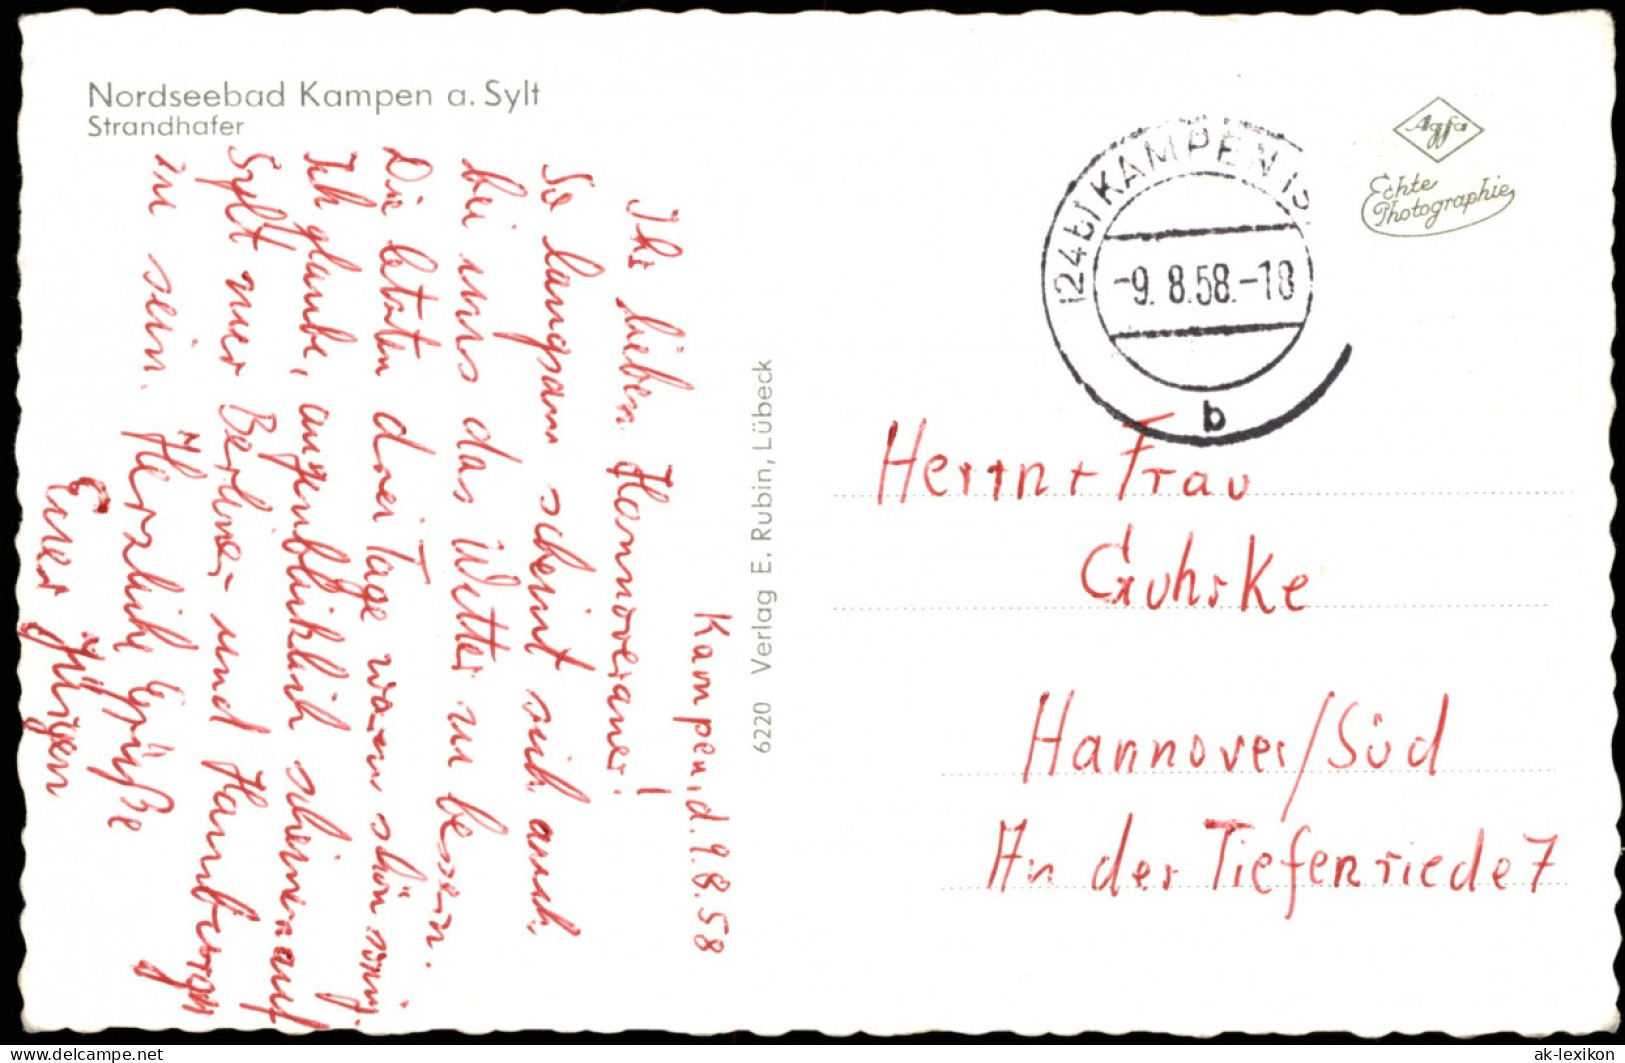 Nordseebad Kampen a. Sylt
Strandhafer
Kampen, d. 9.8.58
Ihr lieben Hannoveraner!
So langsam scheint sich auch
bei uns das Wetter zu bessern.
Die letzten drei Tage waren schön sonnig.
Ich glaube, augenblicklich scheinen auf
Sylt nur Berliner und Hamburger
zu sein. Herzliche Grüße
Euer Jürgen
6220 Verlag E. Rubin, Lübeck
(24b) KAMPEN (S
-9. 8.58.-18
b
Agfa
Echte
Photographie
Herrn + Frau
Guhrke
Hannover/Süd
An der Tiefenriede 7
delcampe.net
ak-lexikon